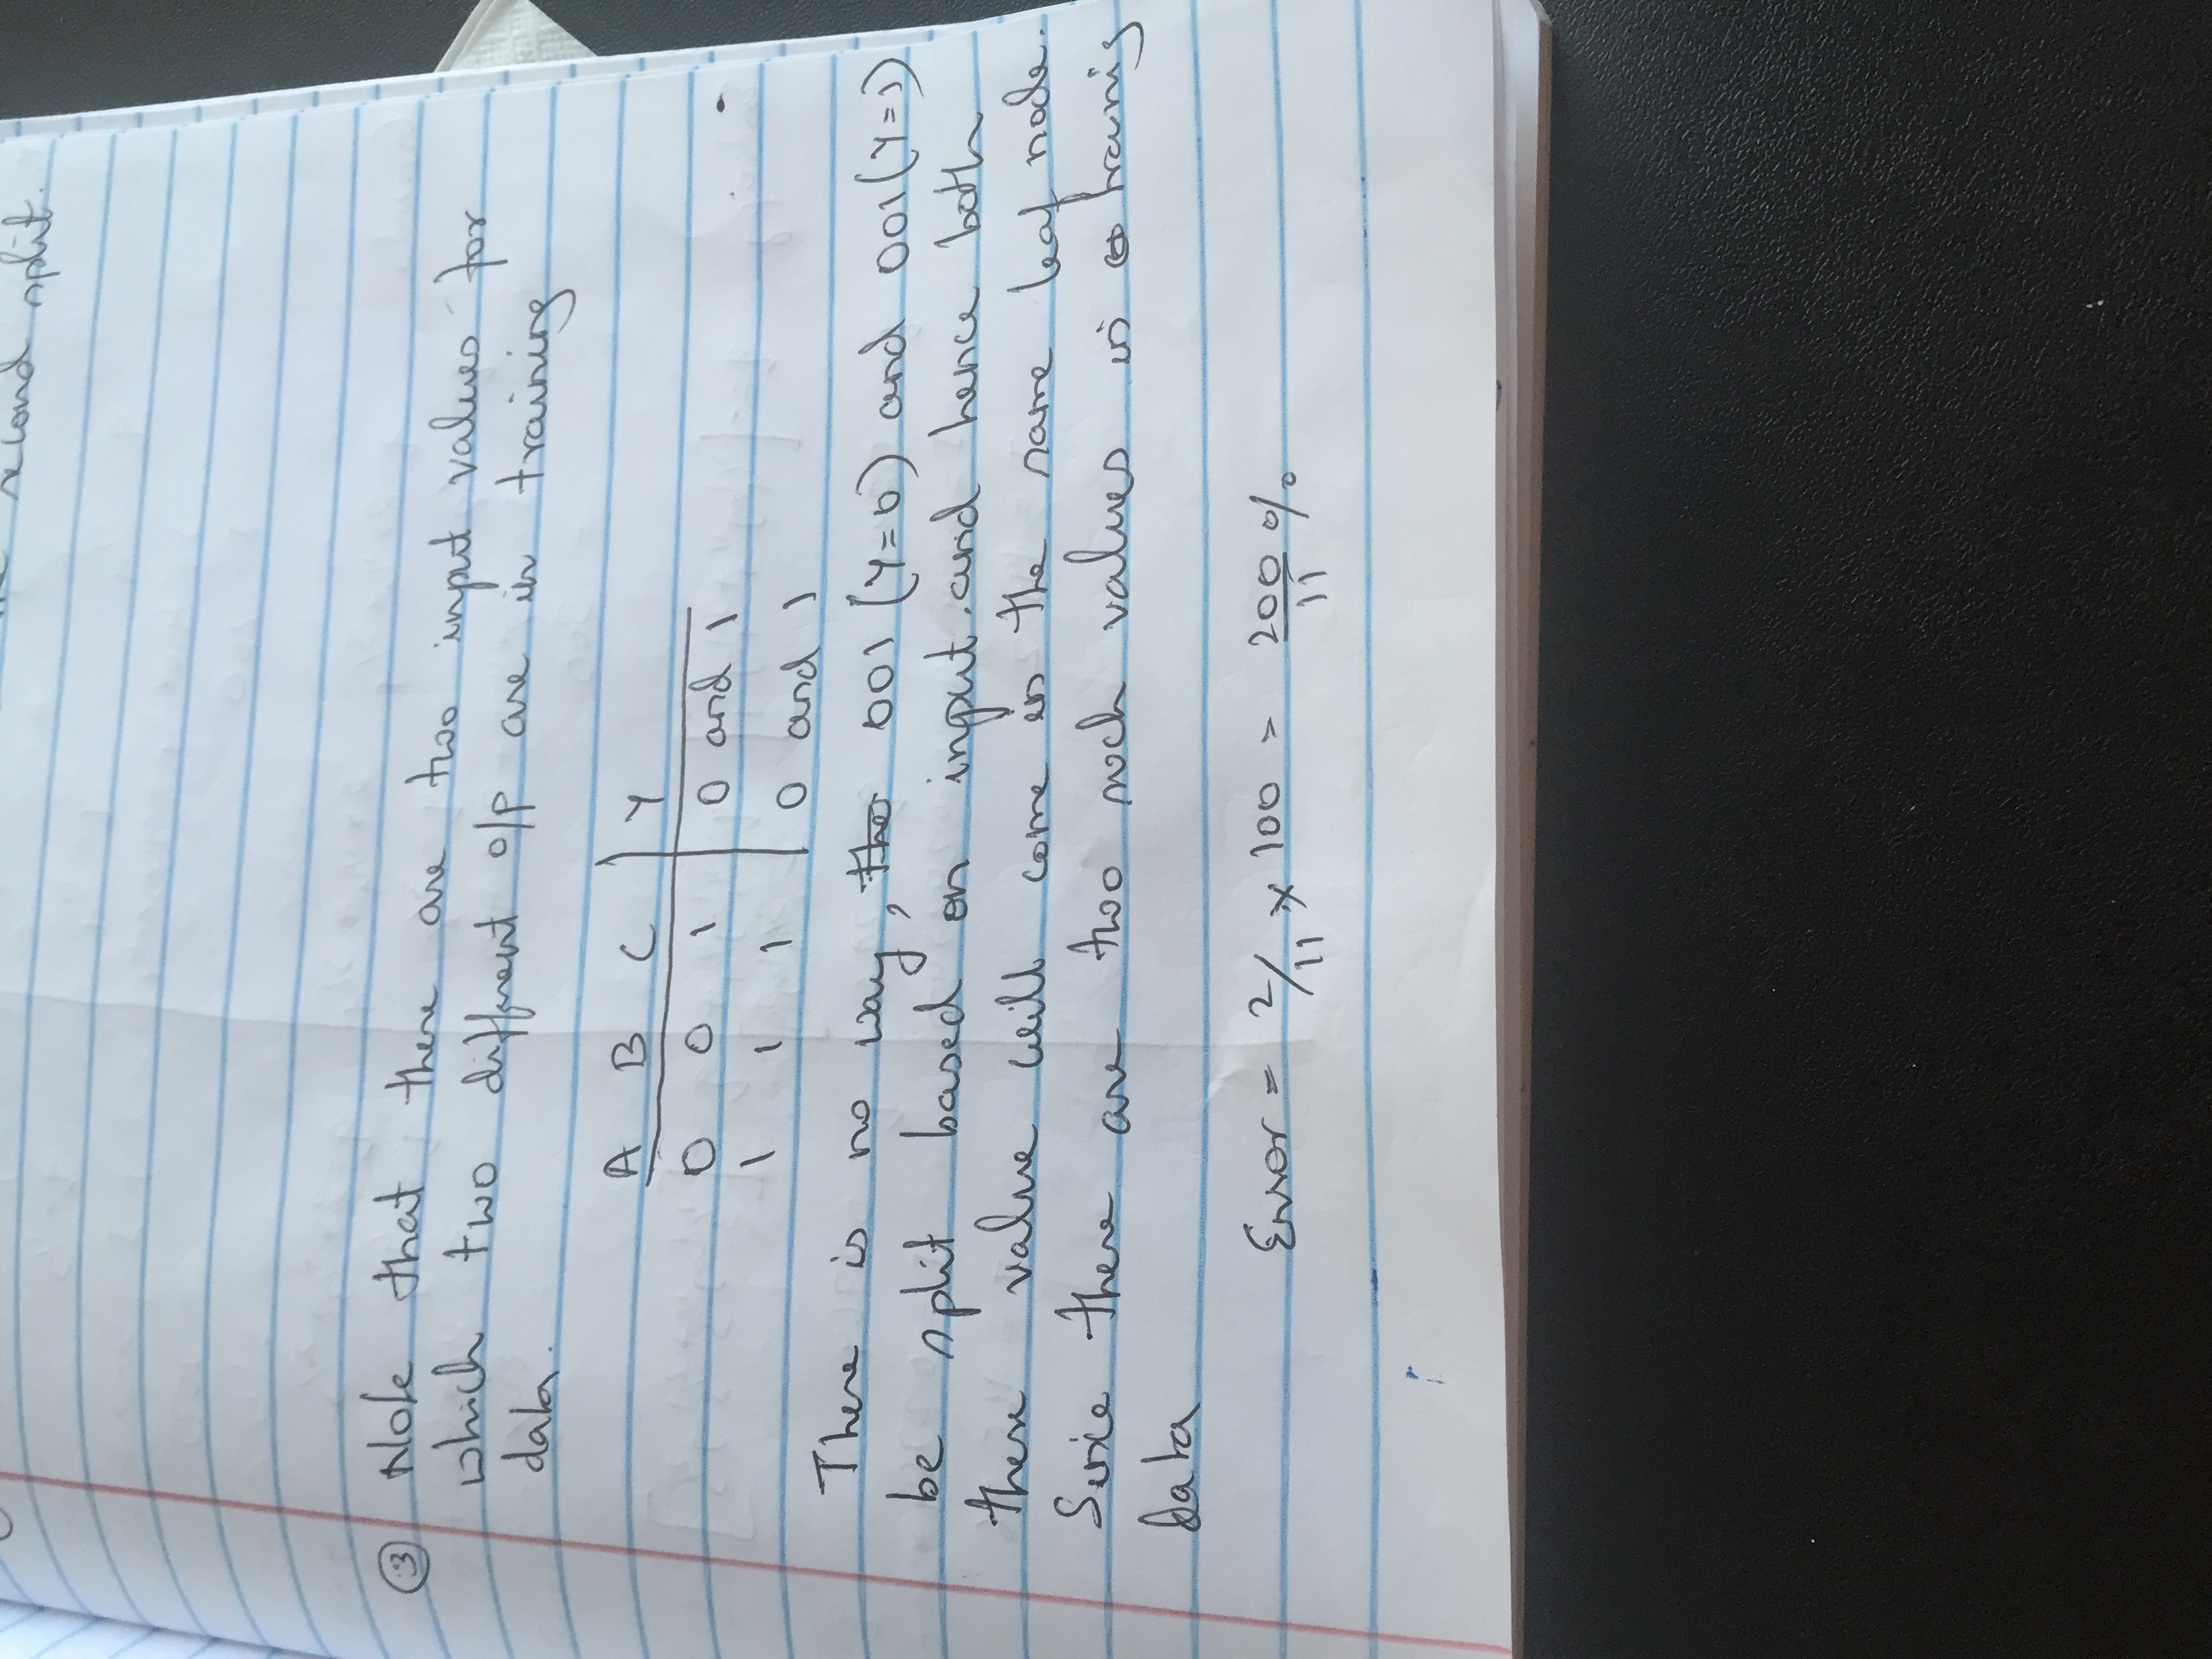 second split.
③ Note that there are two input values for
which two different o/p are in training
data.
A B C | Y
0 0 1 | 0 and 1
1 1 1 | 0 and 1
There is no way, tho 001 (Y=0) and 001 (Y=1)
be split based on input. and hence both
these value will come in the same leaf node.
Since there are two such values in training
data
Error = 2/11 × 100 = 200/11 %